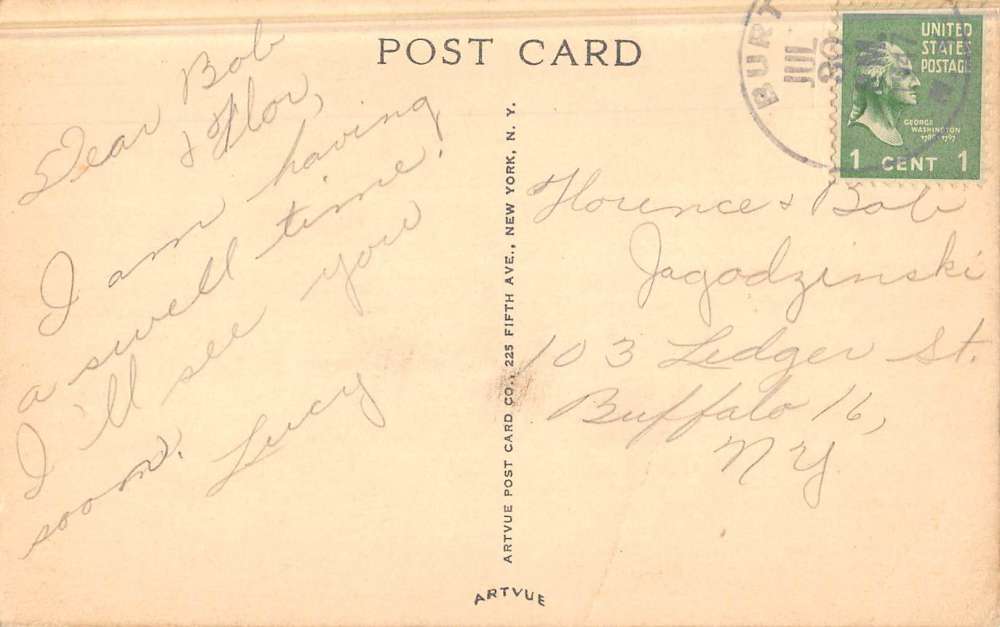 POST CARD
Dear Bob
& Flor,
I am having
a swell time!
I'll see you
soon.
Lucy
ARTVUE POST CARD CO., 225 FIFTH AVE., NEW YORK, N. Y.
ARTVUE
BURT
JUL
30
UNITED
STATES
POSTAGE
GEORGE
WASHINGTON
1 CENT 1
Florence & Bob
Jagodzinski
103 Ledger St.
Buffalo 16,
NY